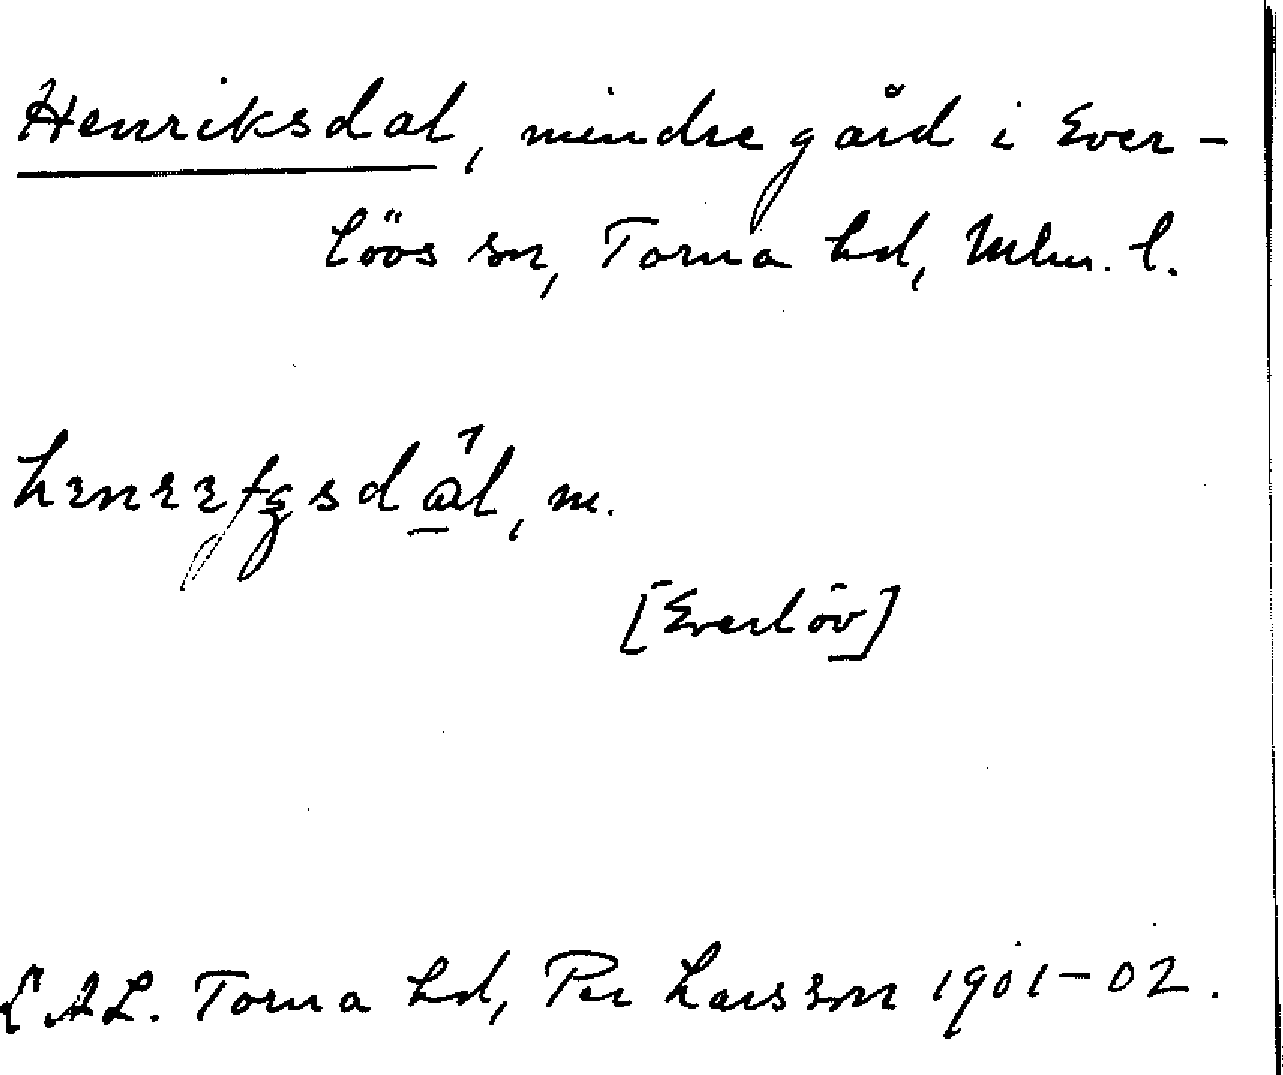 Henriksdal, mindre gård i Ever-
löös sn, Torna hd, Mlm. l.
m.
[Everlöv]
LAL. Torna hd, Per Larsson 1901-02.